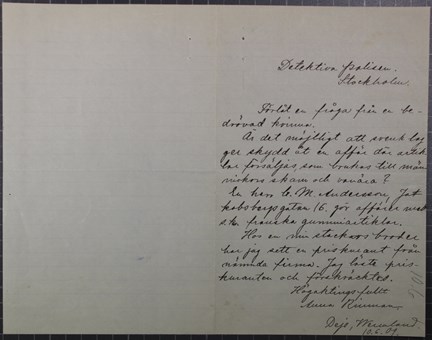 Detektiva Polisen.
Stockholm.
Förlåt en fråga från en be-
drövad kvinna.
Är det möjligt att svensk lag
ger skydd åt en affär där artik-
lar försäljas, som brukas till män-
niskors skam och vanära?
En herr C. M. Andersson, Jak-
kobsbergsgatan 16, gör affärer med
s.k. franska gummiartiklar.
Hos en min stackars broder
har jag sett en priskurant från
nämnda firma. Jag läste pris-
kuranten och förskräcktes.
Högaktningsfullt
Anna
Deje, Wermland